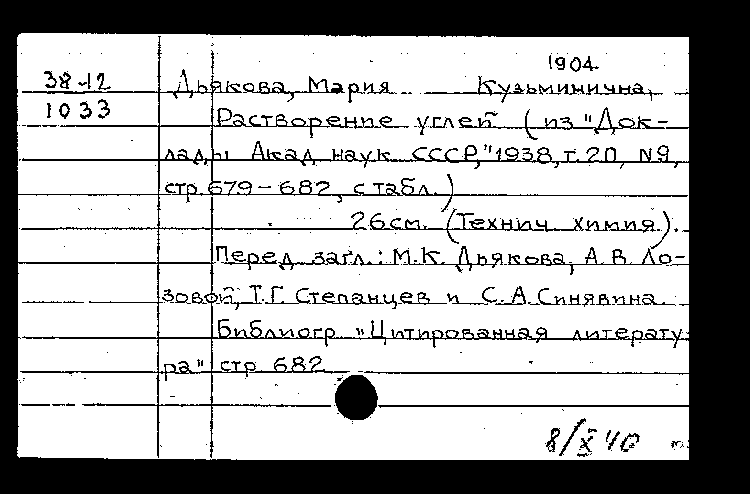 1904
38-12 Дьякова, Мария Кузьминична,
1033
Растворение углей (из "Док-
лады Акад. наук СССР," 1938, т. 20, N9,
стр. 679-682, с табл.)
26см. (Технич. химия).
Перед загл.: М.К. Дьякова, А.В. Ло-
зовой, Т.Г. Степанцев и С.А. Синявина.
Библиогр. "Цитированная литерату-
ра" стр. 682
8/X 40